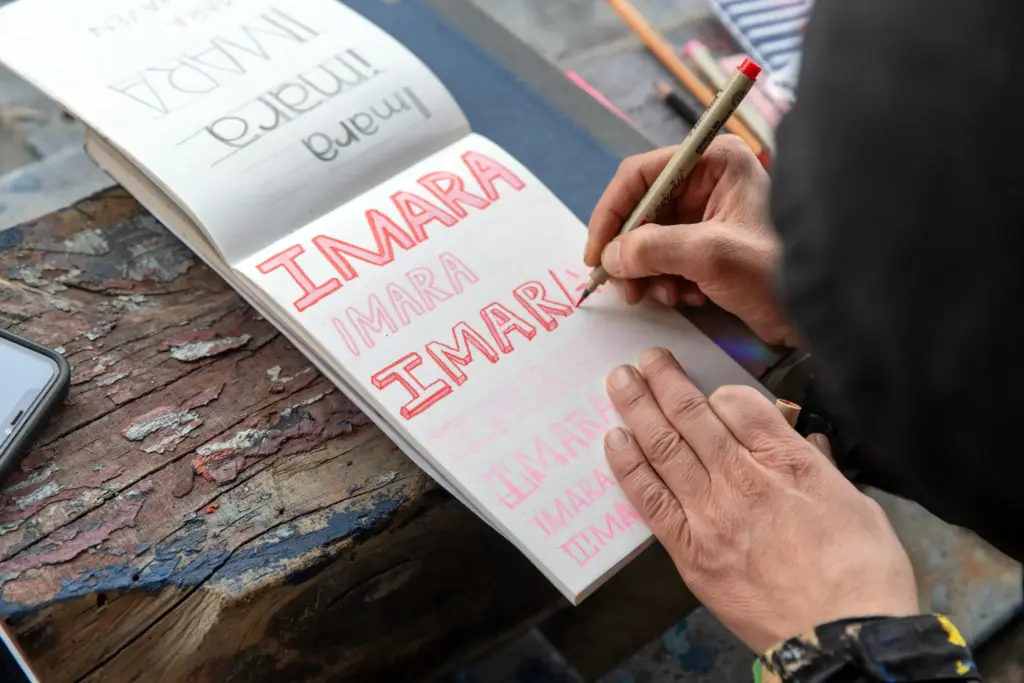 IMARA
IMARA
imara
Imara
IMARA
IMARA
IMARA
IMARA
IMARA
IMARA